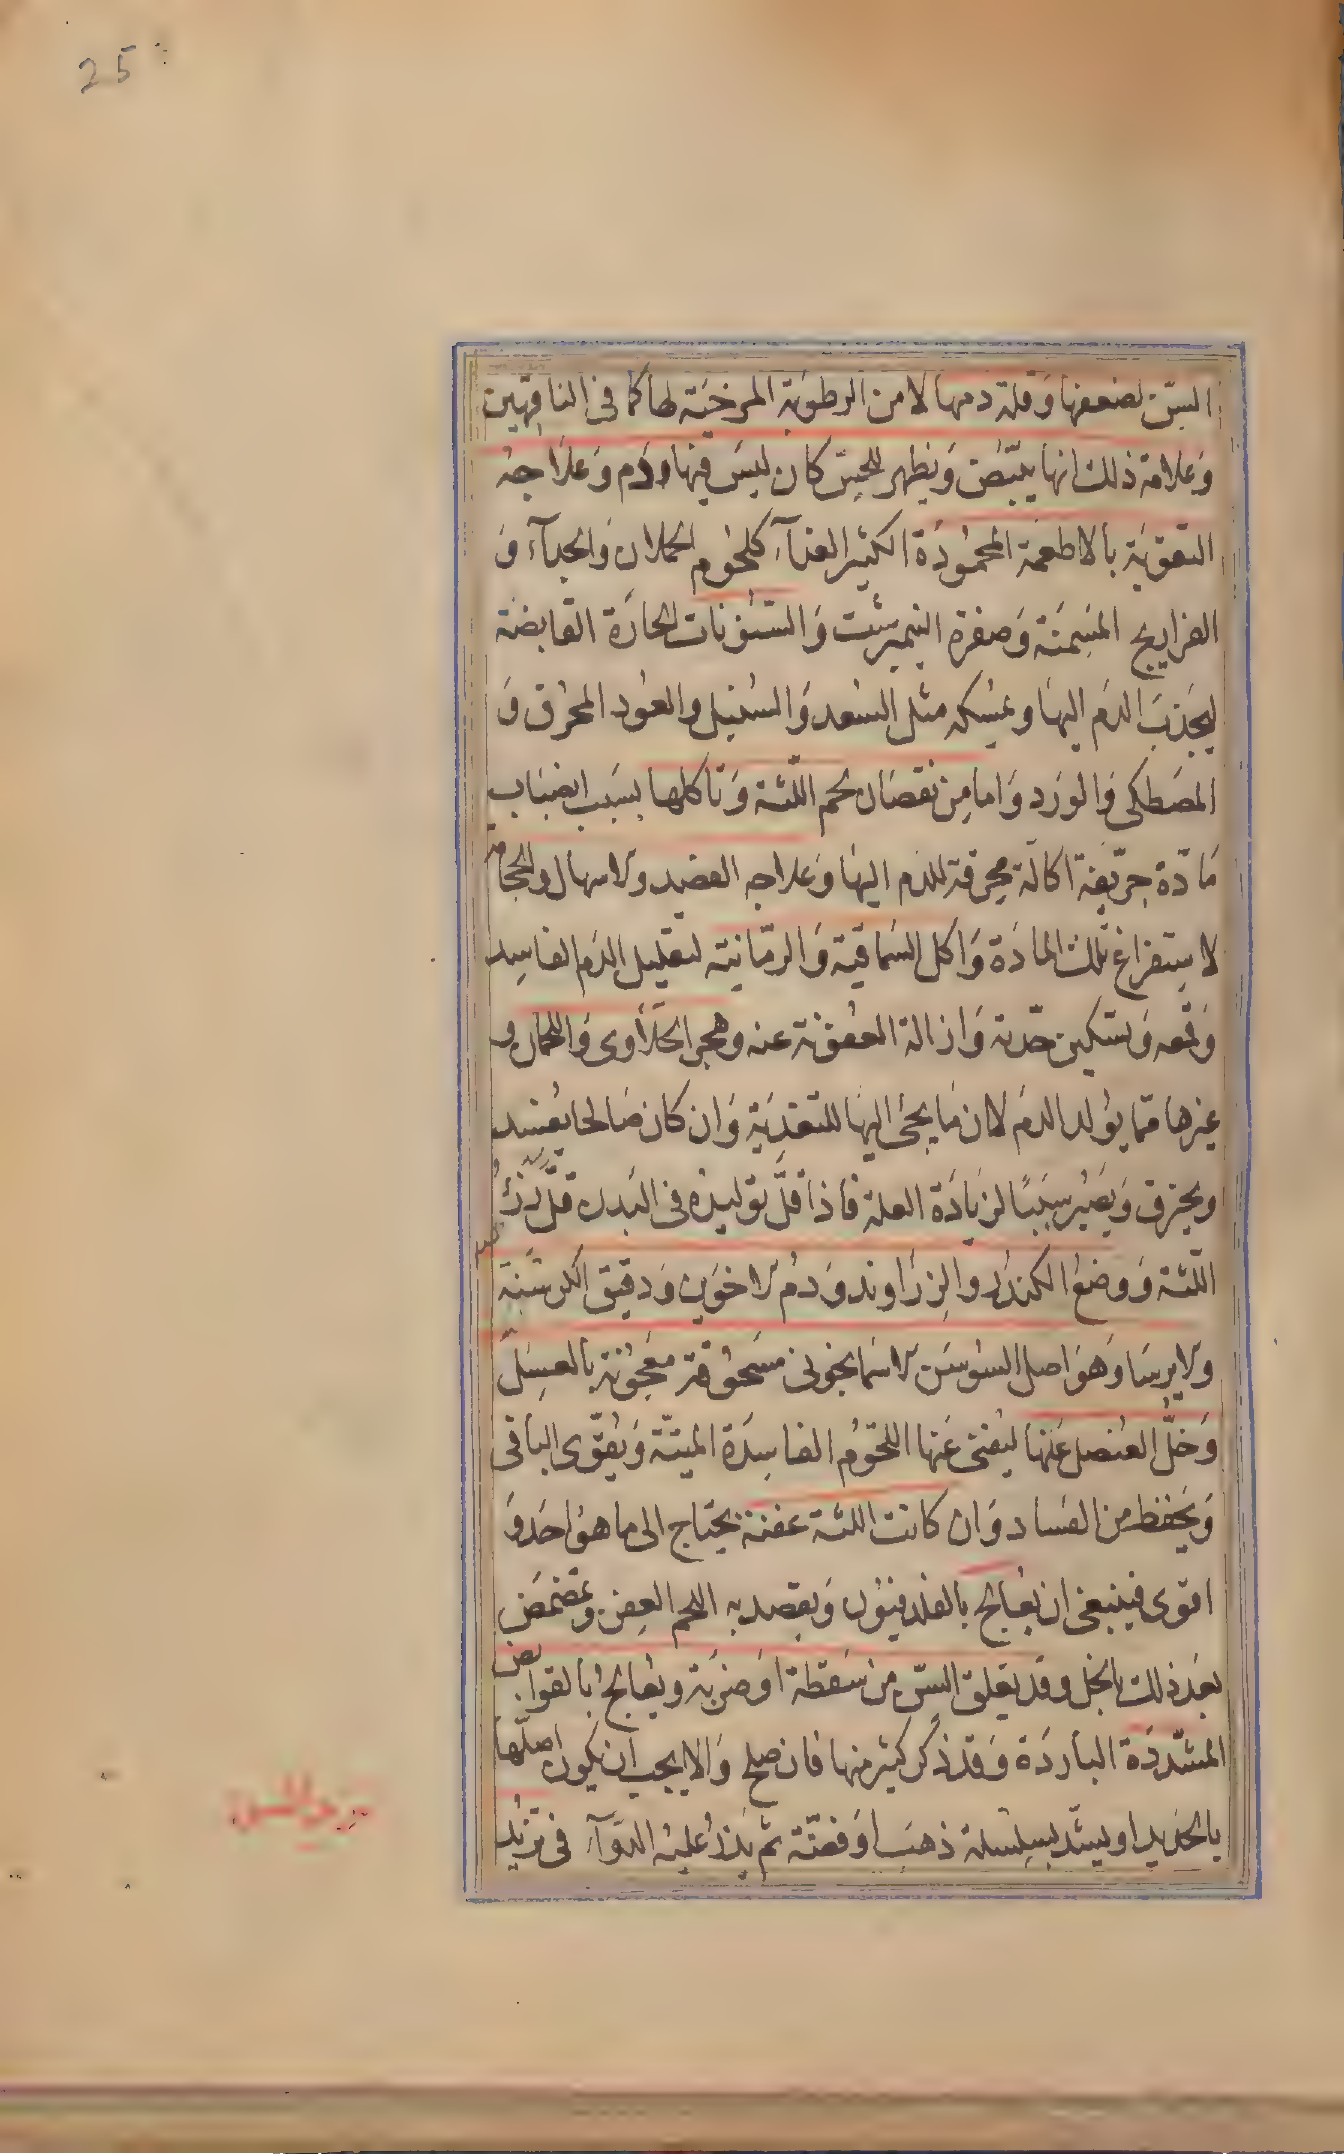 25
السن لضعفها وقلة دمها لا من الرطوبة المرخية لها كما في الناقهين
وعلامة ذلك انها يبيض ويظهر للحس كان ليس فيها دم وعلاجه
التقوية بالاطعمة المحمودة الكثير الغذآء كلحوم الحملان والجدآء و
الفراريج المسمنة وصفرة النيمبرشت والسنونات الحارة القابضة
ليجذب الدم اليها ويمسكه مثل السعد والسنبل والعود المحرق و
المصطكى والورد واما من نقصان لحم اللثة وتاكلها بسبب انصباب
مادة حريفة اكالة محرقة للدم اليها وعلاجه الفصد والاسهال والحجامة
لاستفراغ تلك المادة واكل السماقية والرمانية لتقليل الدم الفاسد
وقمعه وتسكين حدته وازالة العفونة عنه وهجر الحلاوى واللحمان و
غيرها مما يولد الدم لان ما يجئ اليها للتغذية وان كان صالحا يفسد
ويحترق ويصير سببا لزيادة العلة فاذا قل توليده في البدن قل
اللثة ووضع الكندر والزراوند ودم الاخوين ودقيق الكرسنة
والايرسا وهو اصل السوسن الاسمانجوني مسحوقة معجونة بالعسل
وخل العنصل عليها ليفنى عنها اللحوم الفاسدة الميتة ويقوى الباقى
ويحفظ من الفساد وان كانت اللثة عفنة يحتاج الى ما هو احد و
اقوى فينبغى ان يعالج بالفلدفيون ويقصد به اللحم العفن ويتمضمض
بعد ذلك بالخل وقد يقلق السن من سقطة او ضربة ويعالج بالقوابض
المشددة الباردة وقد ذكر كثير منها فان صلح والا يجب ان يكون اصلها
بالحديد او يشد بسلسلة ذهب او فضة ثم يذر عليه الدوآء في تزيد